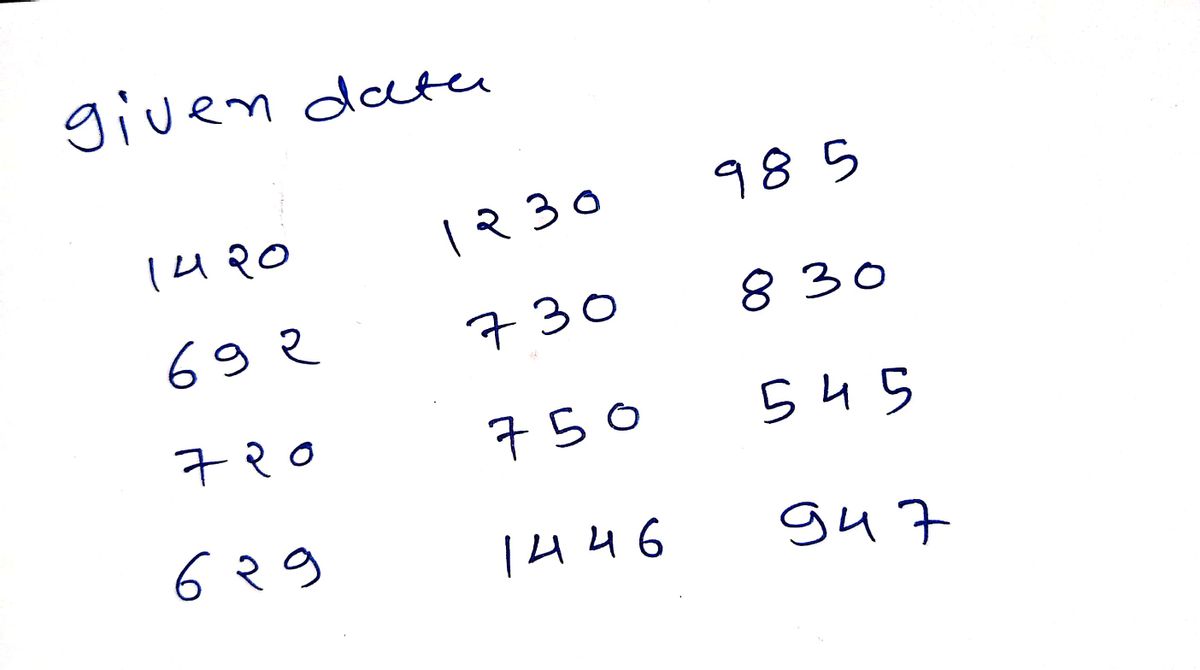 given data
1420 1230 985
692 730 830
720 750 545
629 1446 947